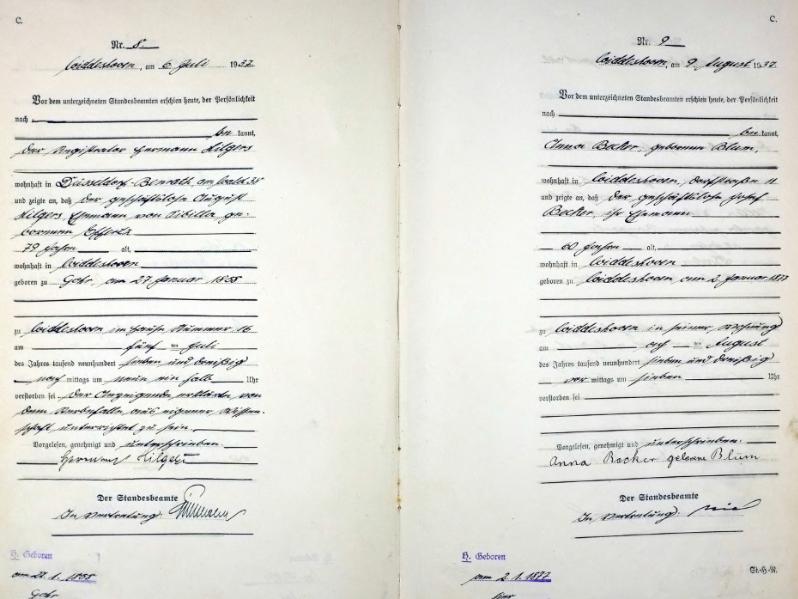 C.
Nr. 8
Widdeshoven, am 6 Juli 1937
Vor dem unterzeichneten Standesbeamten erschien heute, der Persönlichkeit
nach
bekannt,
der Registrator Hermann Hilgers
wohnhaft in Düsseldorf-Benrath, am Wald 35
und zeigte an, daß der geschäftslose August
Hilgers Ehemann von Sibilla ge-
borenen Esser
79 Jahren alt,
wohnhaft in Widdeshoven
geboren zu Gohr, am 27 Januar 1858
zu Widdeshoven im Hause Nummer 16
am fünf ten Juli
des Jahres tausend neunhundert sieben und dreißig
nach mittags um neun ein halb Uhr
verstorben sei. Der Anzeigende erklärte von
dem Sterbefalle aus eigener Wissen-
schaft unterrichtet zu sein.
Vorgelesen, genehmigt und unterschrieben
Hermann Hilgers
Der Standesbeamte
In Vertretung:
H. Geboren
1858
Gohr
C.
Nr. 9
Widdeshoven, am 9 August 1937
Vor dem unterzeichneten Standesbeamten erschien heute, der Persönlichkeit
nach
bekannt,
Anna Becker, geborenen Blum,
wohnhaft in Widdeshoven, Dorfstraße 11
und zeigte an, daß der geschäftslose Josef
Becker, ihr Ehemann
60 Jahren alt,
wohnhaft in Widdeshoven
geboren zu Widdeshoven am 2 Januar 1877
zu Widdeshoven in seiner Wohnung
am ach ten August
des Jahres tausend neunhundert sieben und dreißig
vor mittags um sieben Uhr
verstorben sei
Vorgelesen, genehmigt und unterschrieben.
Anna Becker geborene Blum
Der Standesbeamte
In Vertretung:
H. Geboren
am 2.1.1877
St.-H.-R.